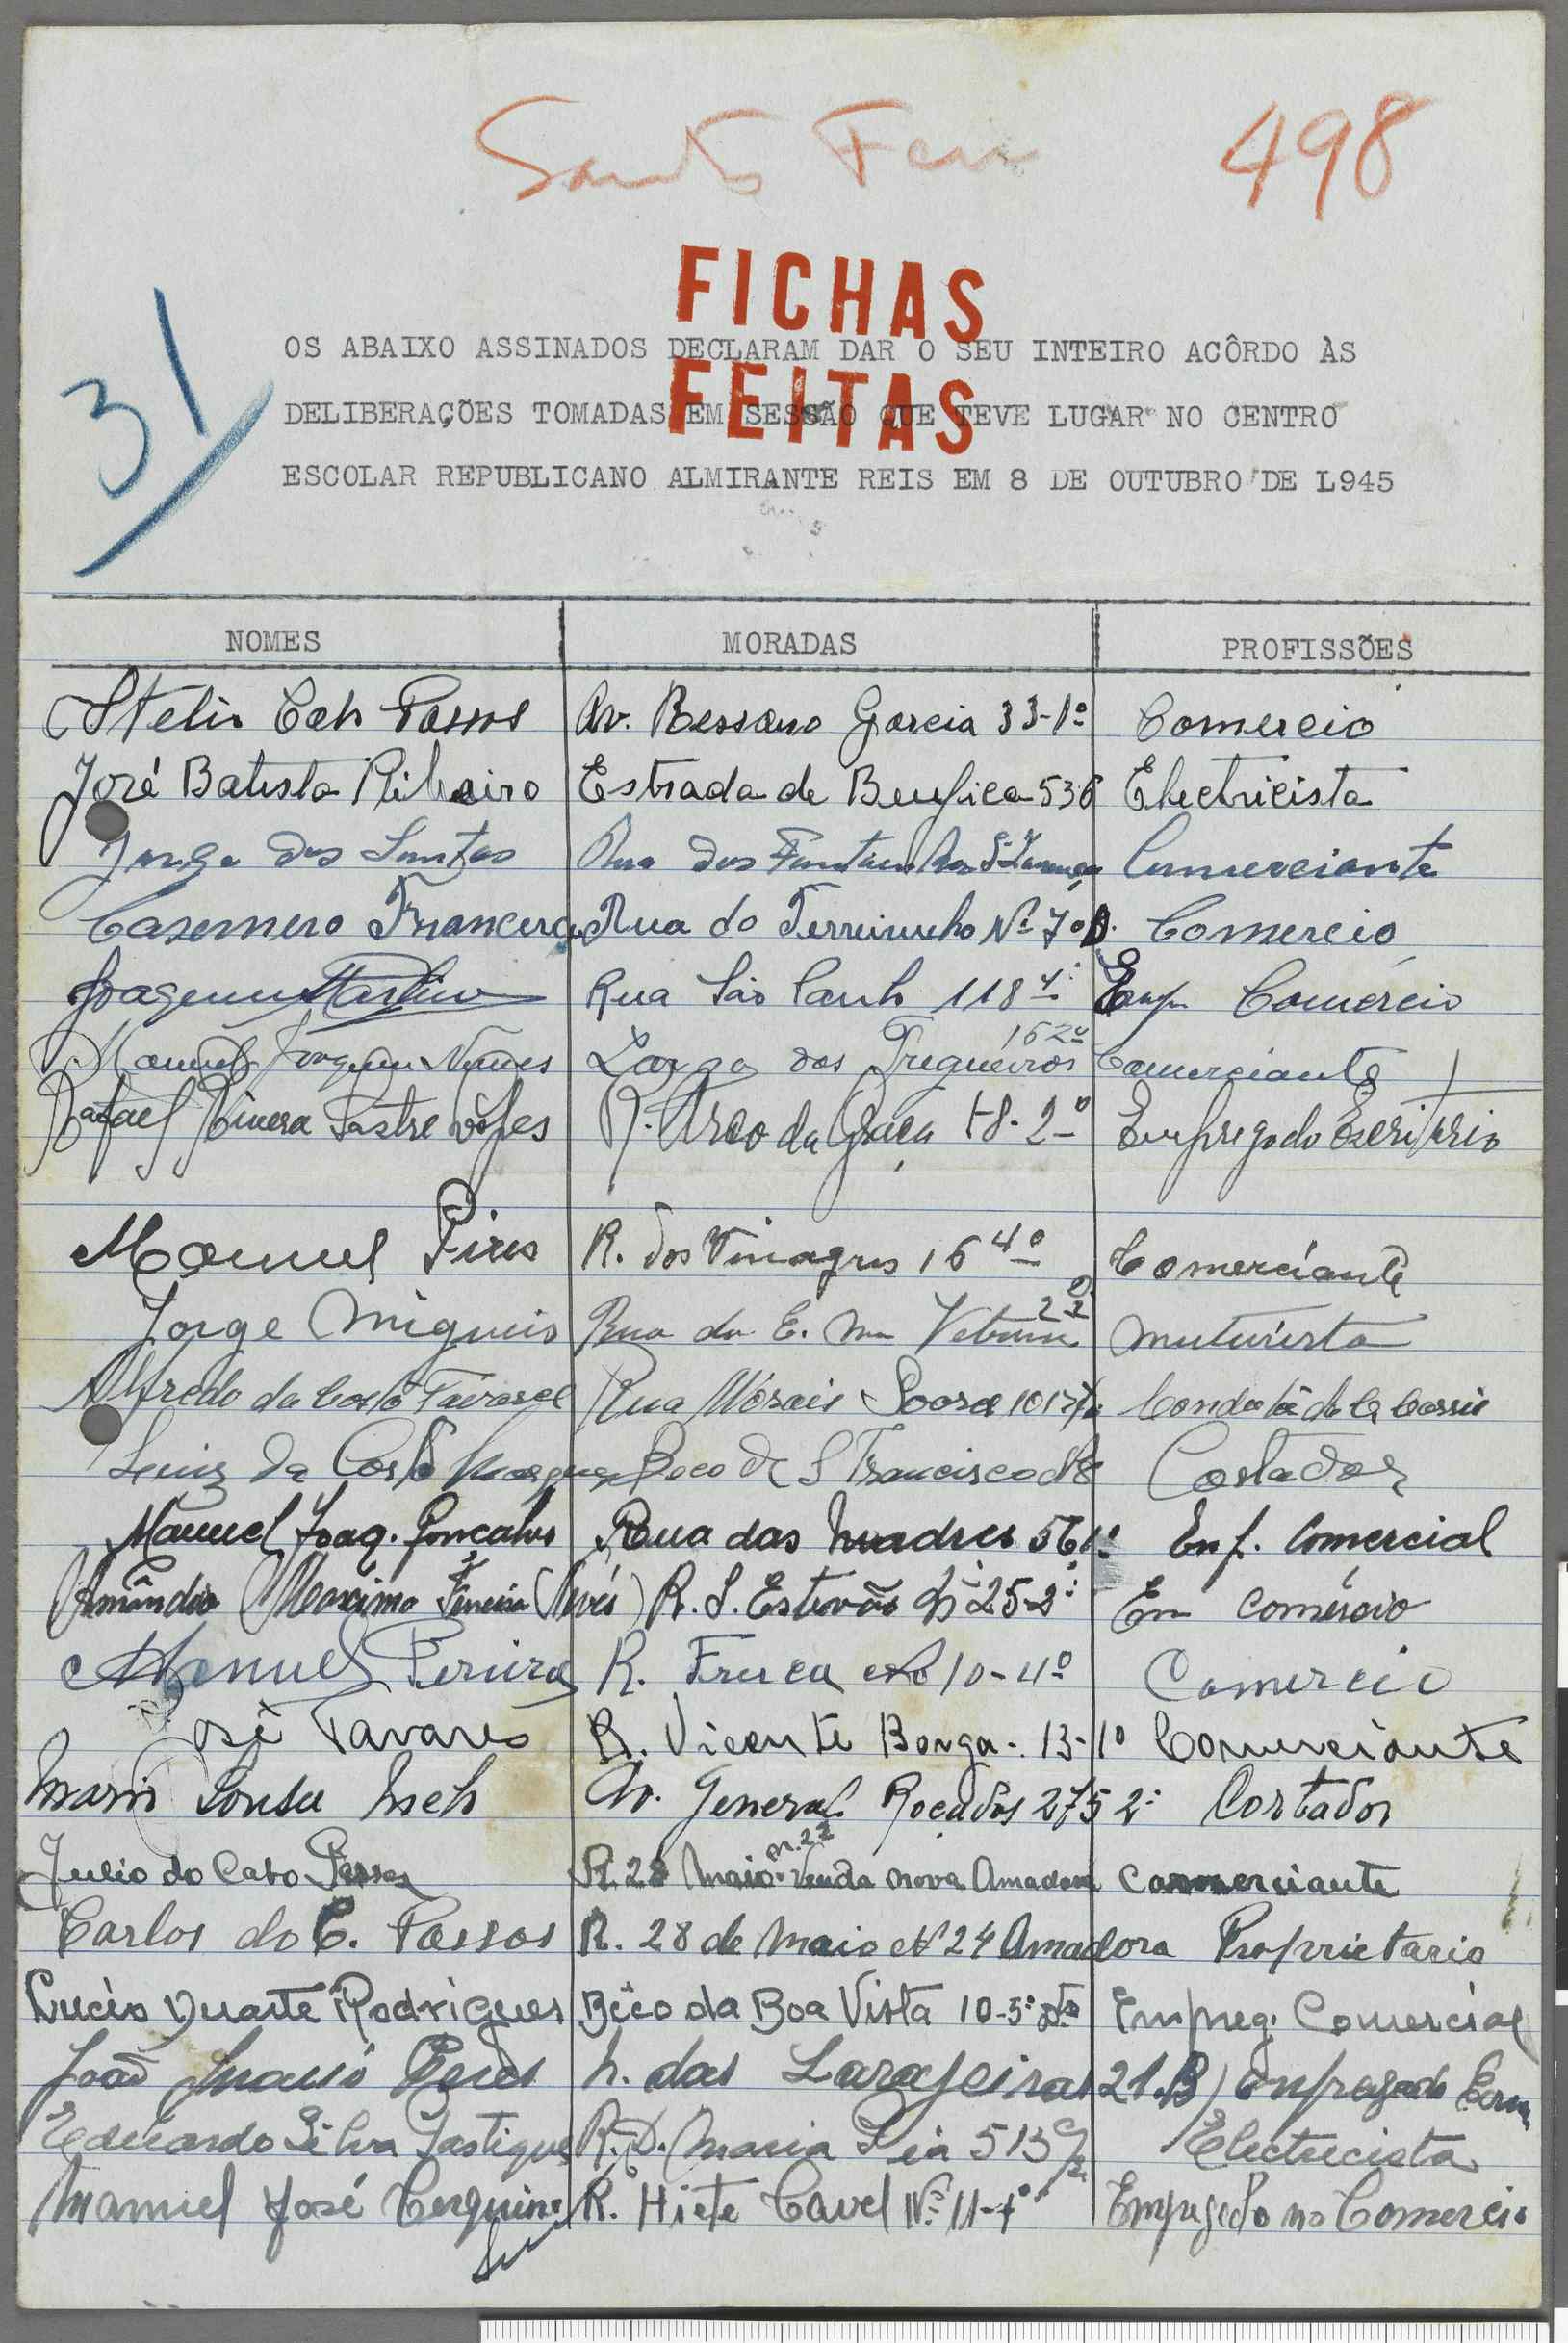 498
FICHAS
FEITAS
31
OS ABAIXO ASSINADOS DECLARAM DAR O SEU INTEIRO ACÔRDO ÀS
DELIBERAÇÕES TOMADAS EM SESSÃO QUE TEVE LUGAR NO CENTRO
ESCOLAR REPUBLICANO ALMIRANTE REIS EM 8 DE OUTUBRO DE L945
NOMES MORADAS PROFISSÕES
Passos Av. Bessano Garcia 33-1º Comercio
José Batista Ribeiro Estrada de Benfica 536 Electricista
Jorge dos Santos Rua dos Comerciante
Rua do Terreirinho Nº 70 Comercio
Joaquim Martins Rua São Paulo 118 Emp. Comércio
Manuel Joaquim Nunes Largo dos Trigueiros 16 2º Comerciante
Rafael Lopes R. Arco da Graça 18-2º Empregado Escritorio
Manuel Pires R. dos Vinagres 16 4º Comerciante
Jorge Migueis Rua da E. 22
Alfredo da Costa Rua Morais Soares Carris
Luiz da Costa Beco de S Francisco Cortador
Manuel Joaq. Gonçalves Rua das Madres 56 1º Emp. Comercial
Amândio Maximo Ferreira (Alvés) R. S. Estevão 25-2º Em comércio
Manuel Pereira R. 10-4º Comercio
José Tavares R. Vicente Borga. 13-1º Comerciante
Sousa Av. General Roçadas 275 2º Cortador
Julio do Cabo Passos R. 28 Maio n.22 Venda nova Amadora Comerciante
Carlos do C. Passos R. 28 de Maio Nº 24 Amadora Proprietario
Lucio Duarte Rodrigues Bêco da Boa Vista 10-5º Dto Empreg. Comercial
João das Larajeiras 21.B) Empregado Com
Eduardo Silva R. D. Maria Pia 513 Electricista
Manuel José Cerqueira R. Cavel Nº 11-1º Empregado no Comercio